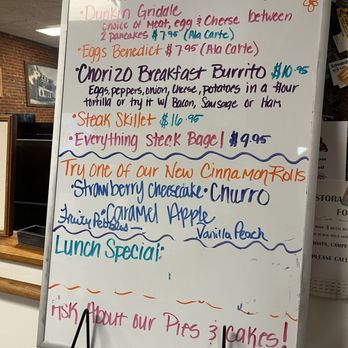 • Dunkin Griddle
choice of meat, egg & cheese between
2 pancakes $7.95 (Ala Carte)
• Eggs Benedict $7.95 (Ala Carte)
• Chorizo Breakfast Burrito $10.95
Eggs, peppers, onion, cheese, potatoes in a flour
tortilla or try it w/ Bacon, Sausage or Ham
• Steak Skillet $16.95
• Everything Steak Bagel $9.95
Try one of our New Cinnamon Rolls
• Strawberry Cheesecake • Churro
• Caramel Apple
Fruity Pebbles
Vanilla Peach
Lunch Special:
Ask About our Pies & cakes!
STORA
FO
BOATS, CAMPE
PLEASE CALL